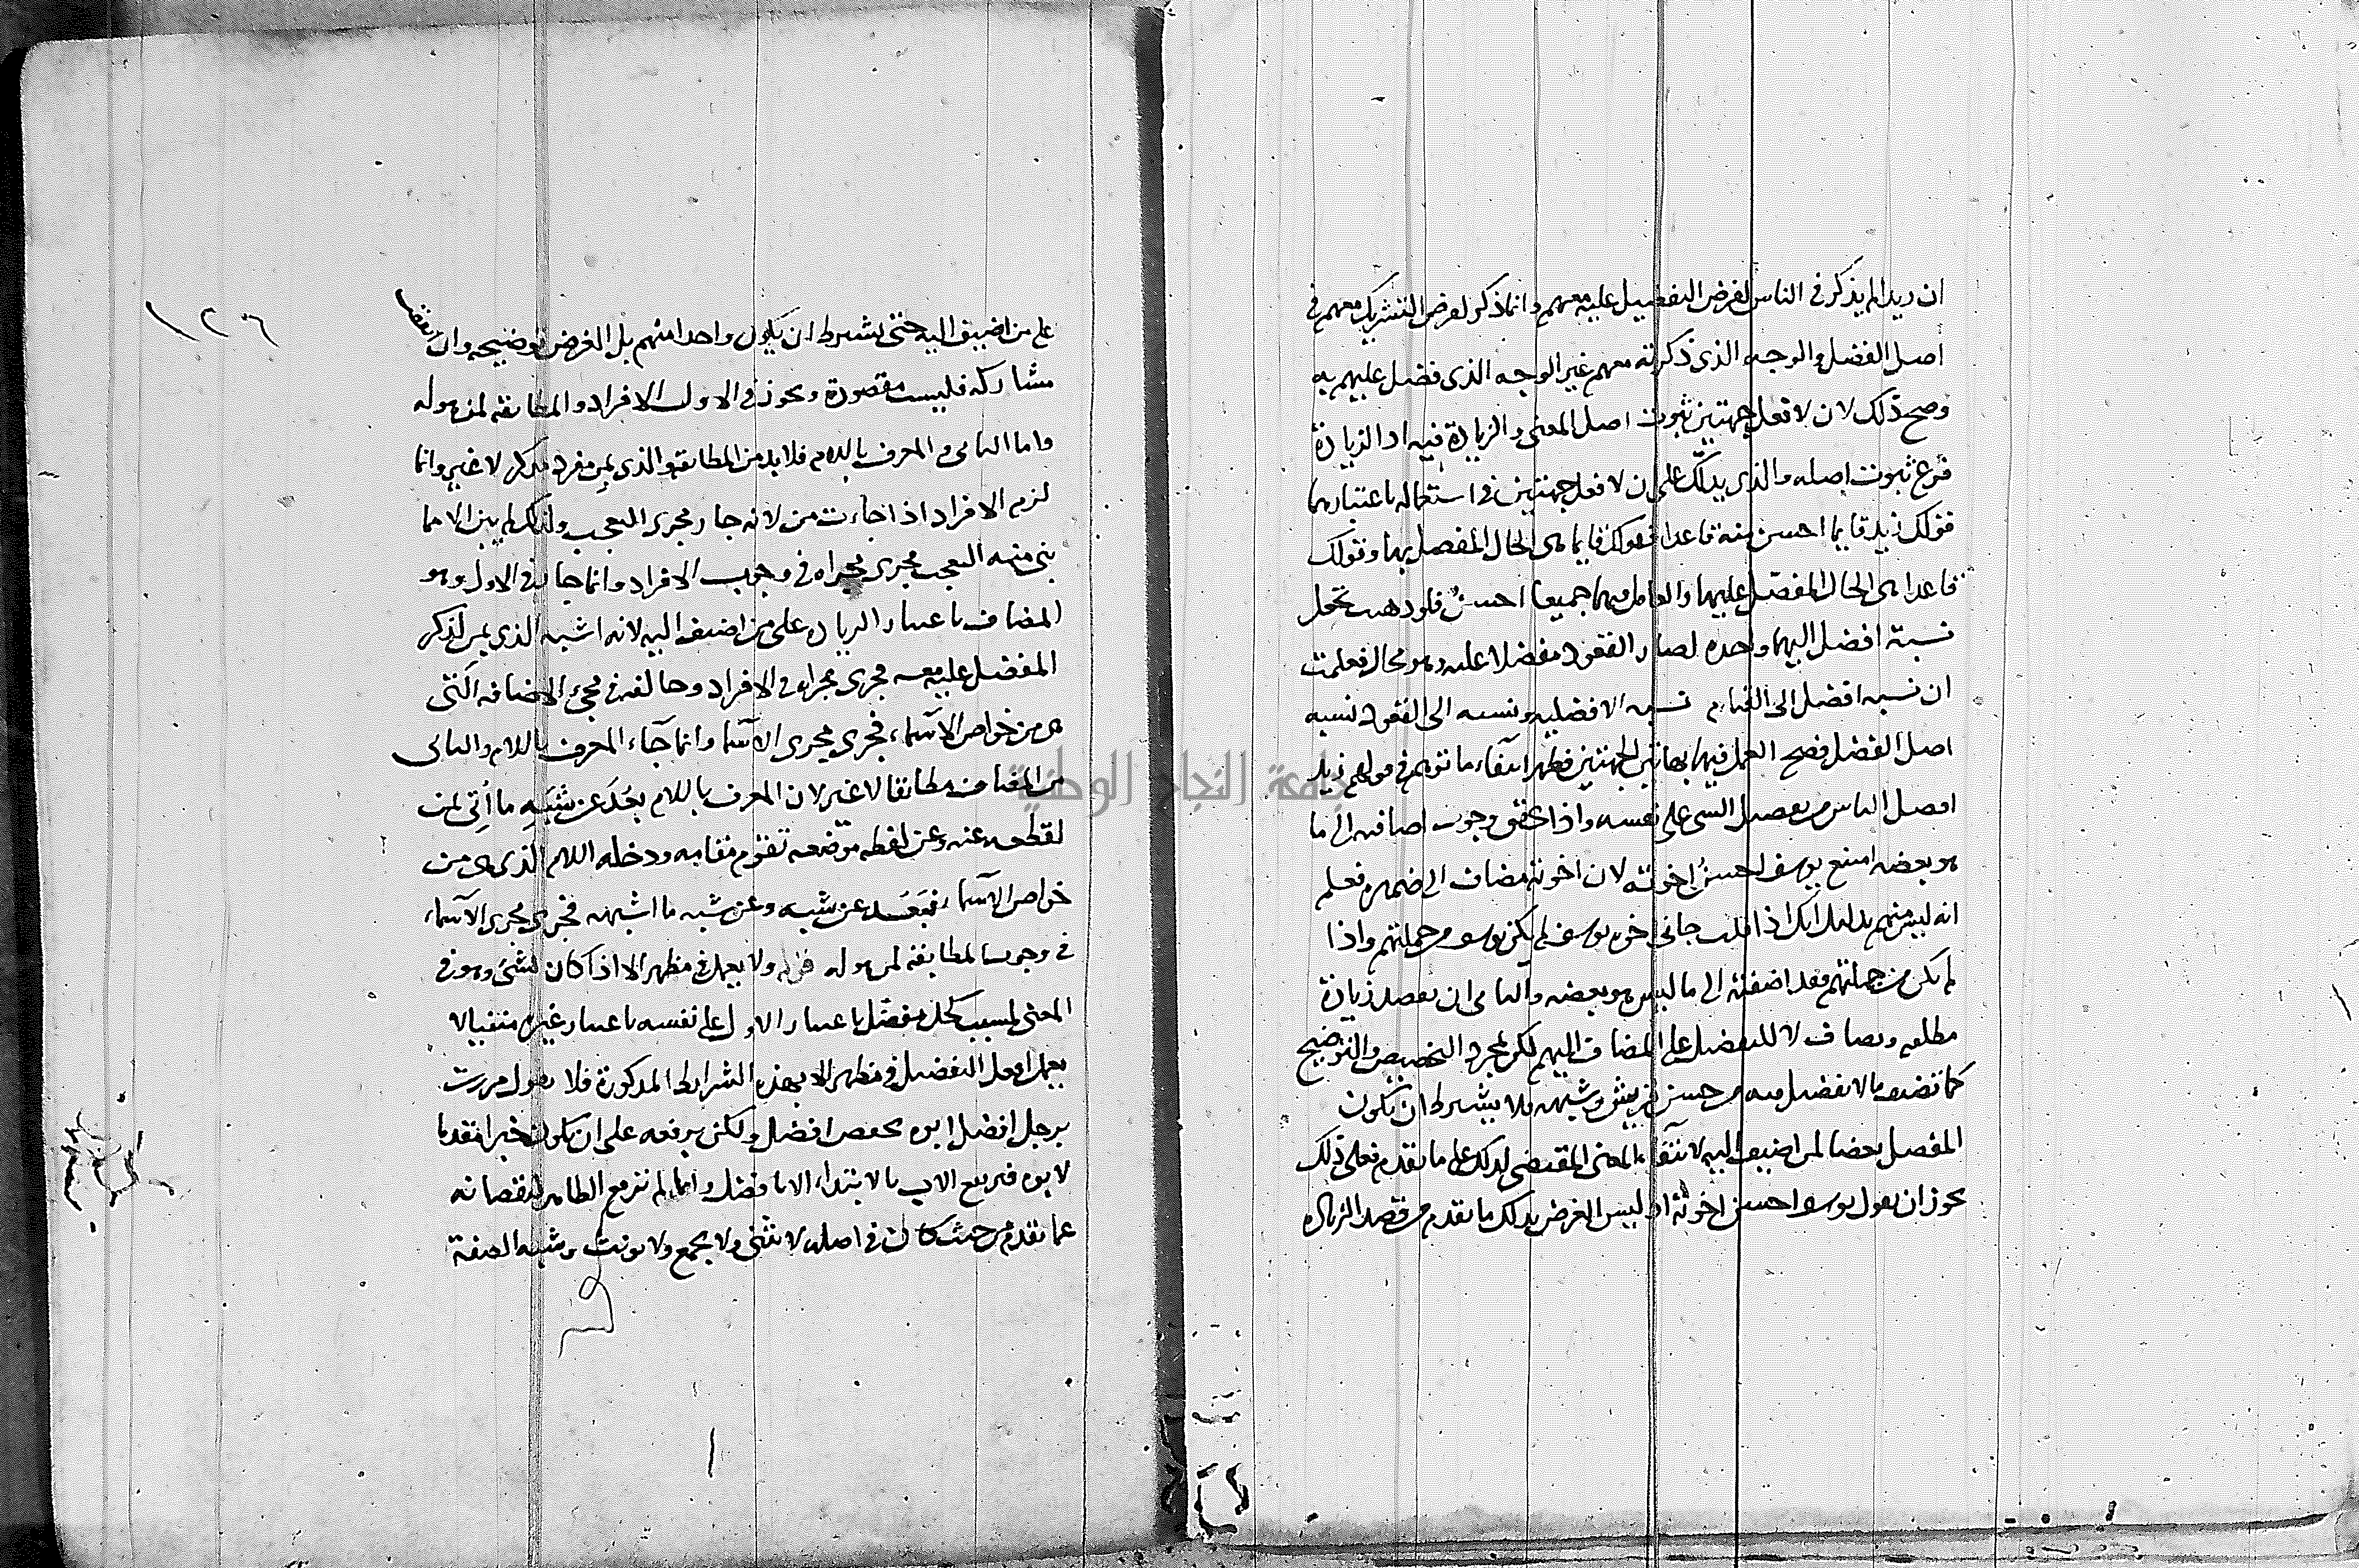 ان زيدا لم يذكر في الناس لغرض التفضيل عليه معهم وانما ذكر لغرض التشريك معهم في
اصل الفضل والوجه الذي ذكرته معهم غير الوجه الذي فضل عليهم به
وصح ذلك لان لافعل جهتين ثبوت اصل المعنى والزيادة فيه اد الزيادة
فرع ثبوت اصله والذي يدلك على ان لافعل جهتين في استعماله باعتبارهما
قولك زيد قايما احسن منه قاعدا فقولك قايما هى الحال المفضل بها وقولك
قاعدا هى الحال المفضل عليها والعامل فيهما جميعا احسن فلو ذهبت تجعل
نسبة افضل اليهما واحده لصار القعود مفضلا عليه وهو محال فعلمت
ان نسبه افضل الى القيام نسبه الافضليه ونسبه الى القعود نسبه
اصل الفضل فصح العمل فيهما بهاتين الجهتين فظهر انتفاء ما توهم في قولهم زيد
افضل الناس من تفضيل الشى على نفسه واذا تحقق وجوب اضافته الى ما
هو بعضه امتنع يوسف احسن اخوته لان اخوته مضاف الى ضميره فعلم
انه ليس منهم بدليل انك اذا قلت جاني اخوه يوسف لم يكن يوسف من جملتهم واذا
لم يكن من جملتهم فقد اضفته الى ما ليس هو بعضه والثاني ان تقصد زيادة
مطلقه ويضاف لا للتفضيل على المضاف اليهم لكن لمجرد التخصيص والتوضيح
كما تضيف ما لا تفضيل فيه من حسن قريش وشبهه ولا يشترط ان يكون
المفضل بعضا لمن اضيف اليه لانتفاء المعنى المقتضى لذلك على ما تقدم فعلى ذلك
يجوز ان تقول يوسف احسن اخوته اذ ليس الغرض بذلك ما تقدم من قصد الزياده
١٢٦
على من اضيف اليه حتى يشترط ان يكون واحدا منهم بل الغرض توضيحه وان
مشاركه فليست مقصودة ويجوز في الاول الافراد والمطابقة لمن هو له
واما الثاني والمعرف باللام فلا بد من المطابقة والذي بمن مفرد مذكر لا غير وانما
لزم الافراد اذا جاءت من لانه جار مجرى التعجب ولذلك لم يبن الا مما
بنى منه التعجب فجرى مجراه في وجوب الافراد وانما جاز في الاول وهو
المضاف باعتبار الزياده على من اضيف اليه لانه اشبه الذي بمن لذكر
المفضل عليه معه فجرى مجراه في الافراد وخالفه في مجئ الاضافه التى
هى من خواص الاسماء فجرى مجرى الاسما وانما جاء المعرف باللام والثانى
من المضاف مطابقا لا غير لان المعرف باللام بعد عن شبه ما اتى لمن
لقطعه عنه وعن لفظه موضعه تقوم مقامه ودخله اللام الذي هى من
خواص الاسماء فبعد عن شبهه وعن شبه ما اشبهه فجرى مجرى الاسماء
في وجوب المطابقة لمن هو له قوله ولا يعمل في مظهر الا اذا كان لشئ وهو في
المعنى لمسبب لكل مفضل باعتبار الاول على نفسه باعتبار غيره منفيا لا
يعمل افعل التفضيل في مظهر الا بهذه الشرايط المذكورة فلا تقول مررت
برجل افضل ابوه بخفض افضل ولكن برفعه على ان يكون خبرا مقدما
لابوه فيرفع الاب بالابتداء لا بافضل وانما لم ترفع الظاهر لنقصانه
عما تقدم من حيث كان في اصله لا يثنى ولا يجمع ولا يونث وشبه الصفة